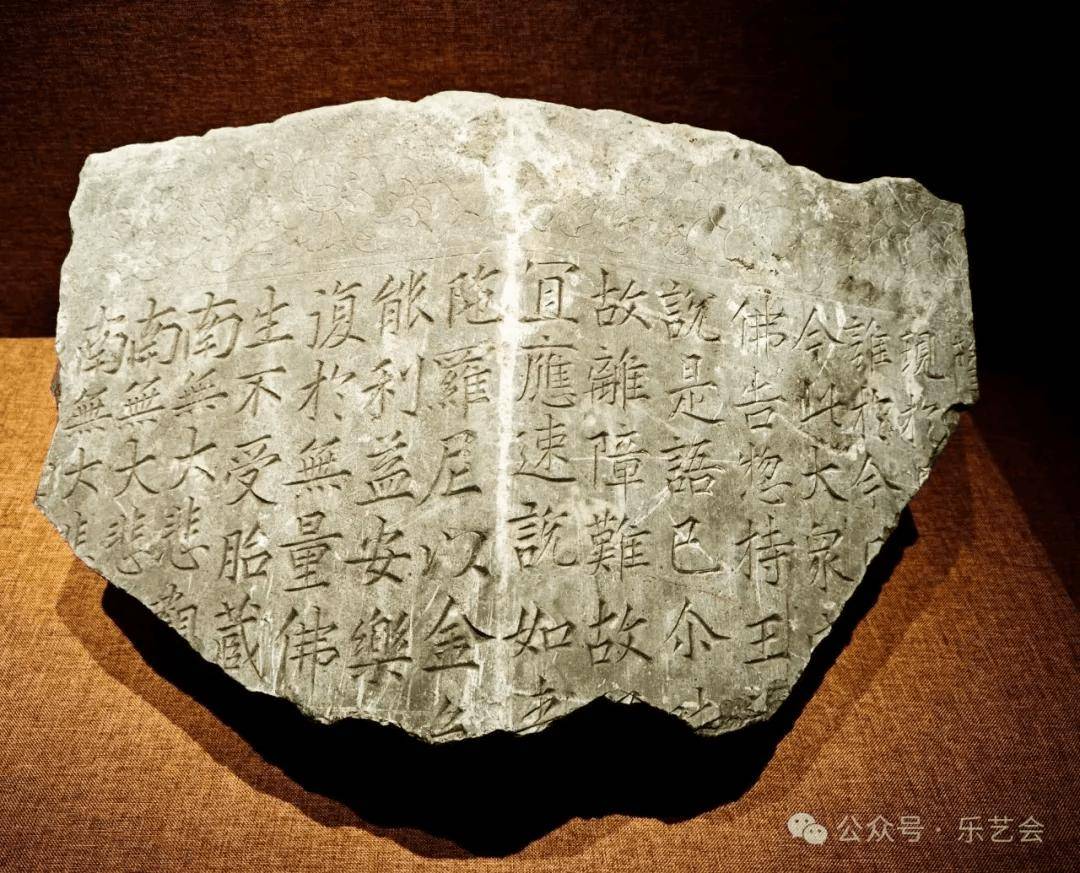 現於
誰於今
今此大衆
佛告惣持王
說是語已尒
故離障難故
宜應速說如
陁羅尼以金
能利益安樂
復於無量佛
生不受胎藏
南無大悲觀
南無大悲
南無大悲
公众号·乐艺会